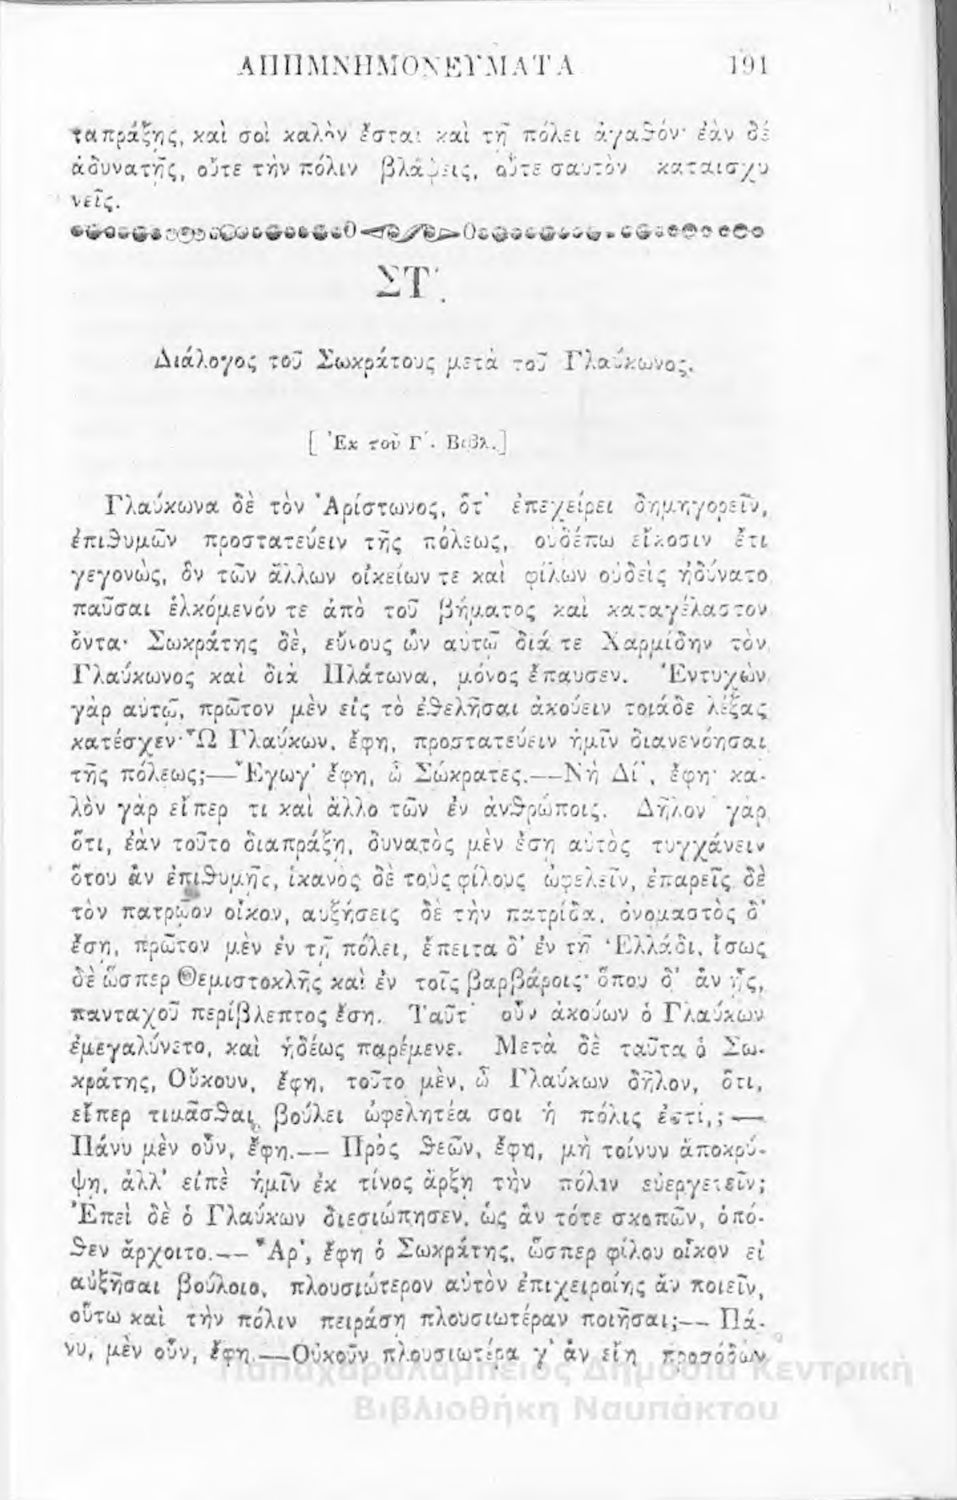 ΑΠΠΜΝΗΜΟΝΕΥΜΑΤΑ 191
ταπράξῃς, καὶ σοὶ καλὸν ἔσται καὶ τῇ πόλει ἀγαθόν· ἐὰν δέ
ἀδυνατῇς, οὔτε τὴν πόλιν βλάψεις, οὔτε σαυτὸν καταισχυ
νεῖς.
ΣΤ΄.
Διάλογος τοῦ Σωκράτους μετὰ τοῦ Γλαύκωνος.
[ Ἐκ τοῦ Γ΄. Βιβλ.]
Γλαύκωνα δὲ τὸν Ἀρίστωνος, ὅτ' ἐπεχείρει δημηγορεῖν,
ἐπιθυμῶν προστατεύειν τῆς πόλεως, οὐδέπω εἴκοσιν ἔτι
γεγονὼς, ὃν τῶν ἄλλων οἰκείων τε καὶ φίλων οὐδεὶς ἠδύνατο
παῦσαι ἑλκόμενόν τε ἀπὸ τοῦ βήματος καὶ καταγέλαστον
ὄντα· Σωκράτης δὲ, εὔνους ὢν αὐτῷ διά τε Χαρμίδην τὸν
Γλαύκωνος καὶ διὰ Πλάτωνα, μόνος ἔπαυσεν. Ἐντυχὼν
γὰρ αὐτῷ, πρῶτον μὲν εἰς τὸ ἐθελῆσαι ἀκούειν τοιάδε λέξας
κατέσχεν· Ὦ Γλαύκων, ἔφη, προστατεύειν ἡμῖν διανενόησαι
τῆς πόλεως;—Ἔγωγ' ἔφη, ὦ Σώκρατες.—Νὴ Δί', ἔφη· κα-
λὸν γὰρ εἴπερ τι καὶ ἄλλο τῶν ἐν ἀνθρώποις. Δῆλον γὰρ
ὅτι, ἐὰν τοῦτο διαπράξῃ, δυνατὸς μὲν ἔσῃ αὐτὸς τυγχάνειν
ὅτου ἂν ἐπιθυμῇς, ἱκανὸς δὲ τοὺς φίλους ὠφελεῖν, ἐπαρεῖς δὲ
τὸν πατρῷον οἶκον, αὐξήσεις δὲ τὴν πατρίδα, ὀνομαστὸς δ'
ἔσῃ, πρῶτον μὲν ἐν τῇ πόλει, ἔπειτα δ' ἐν τῇ Ἑλλάδι, ἴσως
δὲ ὥσπερ Θεμιστοκλῆς καὶ ἐν τοῖς βαρβάροις· ὅπου δ' ἂν ᾖς,
πανταχοῦ περίβλεπτος ἔσῃ. Ταῦτ' οὖν ἀκούων ὁ Γλαύκων
ἐμεγαλύνετο, καὶ ἡδέως παρέμενε. Μετὰ δὲ ταῦτα ὁ Σω-
κράτης, Οὔκουν, ἔφη, τοῦτο μὲν, ὦ Γλαύκων δῆλον, ὅτι,
εἴπερ τιμᾶσθαι βούλει ὠφελητέα σοι ἡ πόλις ἐστί,;—
Πάνυ μὲν οὖν, ἔφη.— Πρὸς θεῶν, ἔφη, μὴ τοίνυν ἀποκρύ-
ψῃ, ἀλλ' εἰπὲ ἡμῖν ἐκ τίνος ἄρξῃ τὴν πόλιν εὐεργετεῖν;
Ἐπεὶ δὲ ὁ Γλαύκων διεσιώπησεν, ὡς ἂν τότε σκοπῶν, ὁπό-
θεν ἄρχοιτο.—Ἆρ', ἔφη ὁ Σωκράτης, ὥσπερ φίλου οἶκον εἰ
αὐξῆσαι βούλοιο, πλουσιώτερον αὐτὸν ἐπιχειροίης ἂν ποιεῖν,
οὕτω καὶ τὴν πόλιν πειράσῃ πλουσιωτέραν ποιῆσαι;— Πά-
νυ, μὲν οὖν, ἔφη.—Οὐκοῦν πλουσιωτέρα γ' ἂν εἴη προσόδων
Παπαχαραλάμπειος Δημόσια Κεντρική
Βιβλιοθήκη Ναυπάκτου